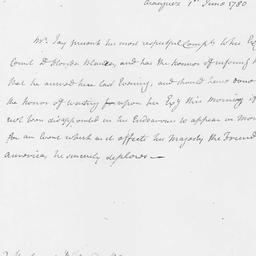 Aranjuez 1st June 1780
Mr. Jay presents his most respectful Complts to his Ex
Count D Florida Blanca, and has the honor of informing h
that he arrived here last Evening, and should have
the honor of waiting upon his Exy this Morning if
not been disappointed in his Endeavours to appear in Mou
for an Event which as it affects his Majesty the Friend
America he sincerely deplores —